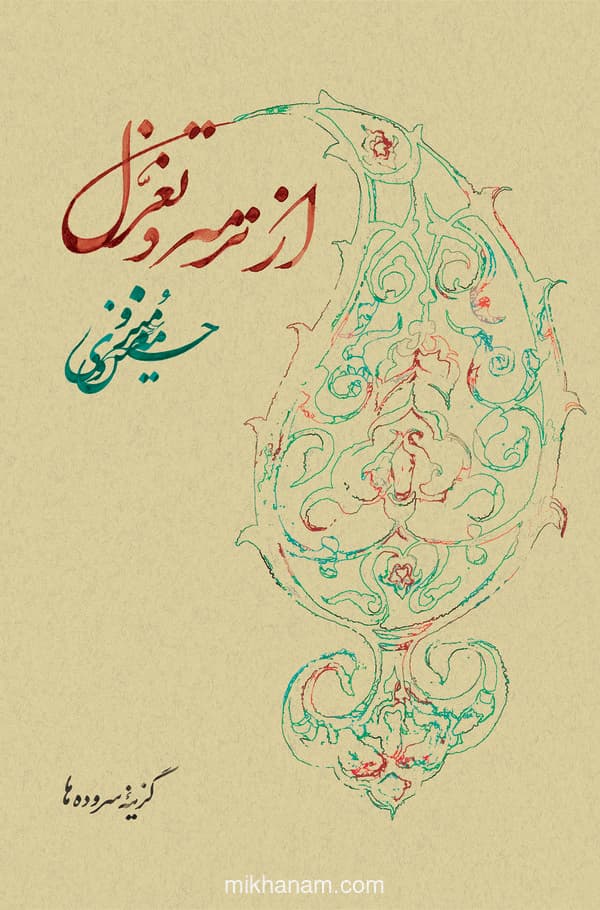 از ترمه و تغزّل
حسین منزوی
گزینهٔ سروده‌ها
mikhanam.com